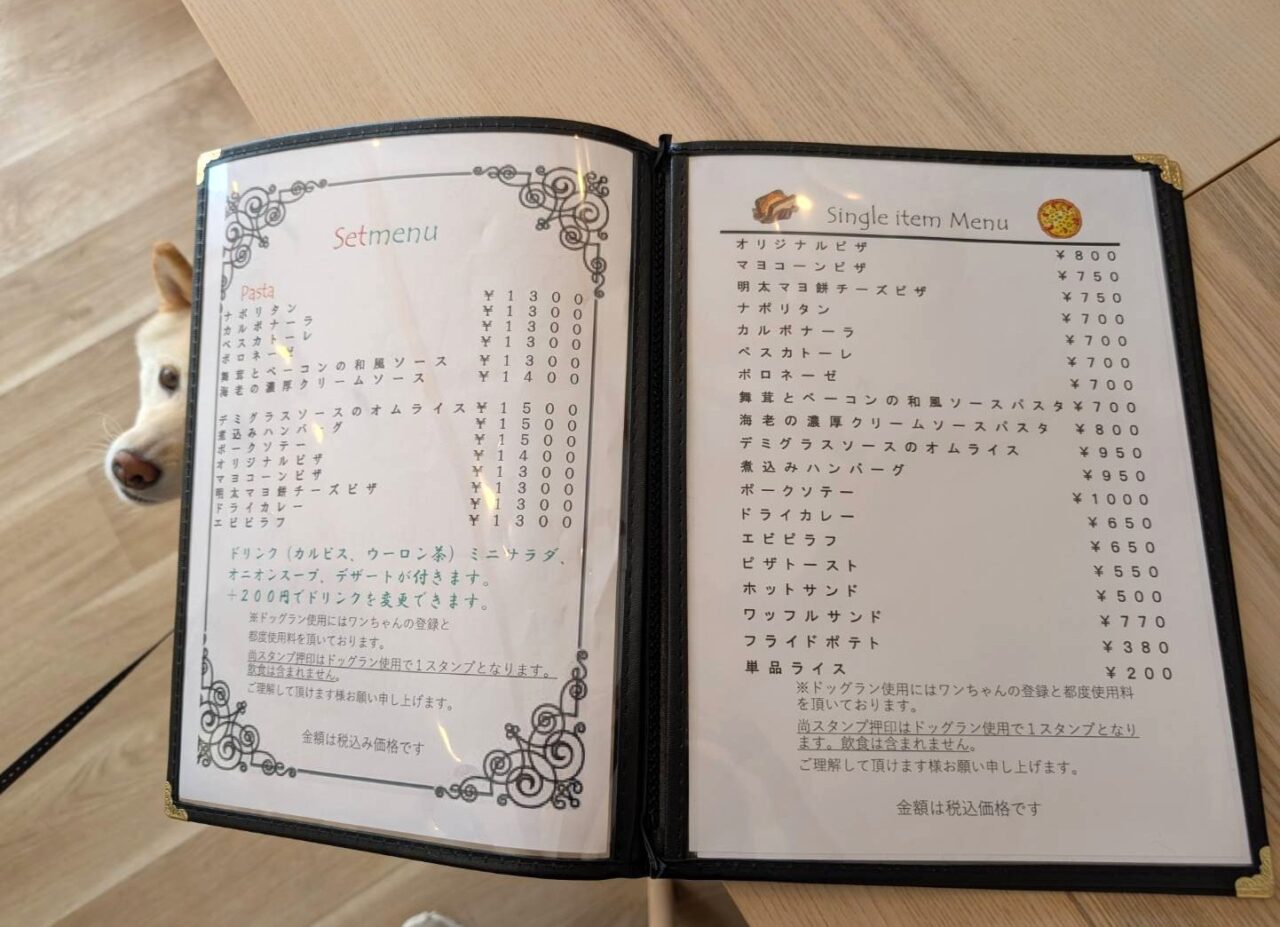 Setmenu
Pasta
ナポリタン ¥1300
カルボナーラ ¥1300
ペスカトーレ ¥1300
ボロネーゼ ¥1300
舞茸とベーコンの和風ソース ¥1300
海老の濃厚クリームソース ¥1400
デミグラスソースのオムライス ¥1500
煮込みハンバーグ ¥1500
ポークソテー ¥1500
オリジナルピザ ¥1400
マヨコーンピザ ¥1300
明太マヨ餅チーズピザ ¥1300
ドライカレー ¥1300
エビピラフ ¥1300
ドリンク（カルピス、ウーロン茶）ミニサラダ、
オニオンスープ、デザートが付きます。
+200円でドリンクを変更できます。
※ドッグラン使用にはワンちゃんの登録と
都度使用料を頂いております。
尚スタンプ押印はドッグラン使用で１スタンプとなります。
飲食は含まれません。
ご理解して頂けます様お願い申し上げます。
金額は税込み価格です
Single item Menu
オリジナルピザ ¥800
マヨコーンピザ ¥750
明太マヨ餅チーズピザ ¥750
ナポリタン ¥700
カルボナーラ ¥700
ペスカトーレ ¥700
ボロネーゼ ¥700
舞茸とベーコンの和風ソースパスタ ¥700
海老の濃厚クリームソースパスタ ¥800
デミグラスソースのオムライス ¥950
煮込みハンバーグ ¥950
ポークソテー ¥1000
ドライカレー ¥650
エビピラフ ¥650
ピザトースト ¥550
ホットサンド ¥500
ワッフルサンド ¥770
フライドポテト ¥380
単品ライス ¥200
※ドッグラン使用にはワンちゃんの登録と都度使用料
を頂いております。
尚スタンプ押印はドッグラン使用で１スタンプとなり
ます。飲食は含まれません。
ご理解して頂けます様お願い申し上げます。
金額は税込価格です